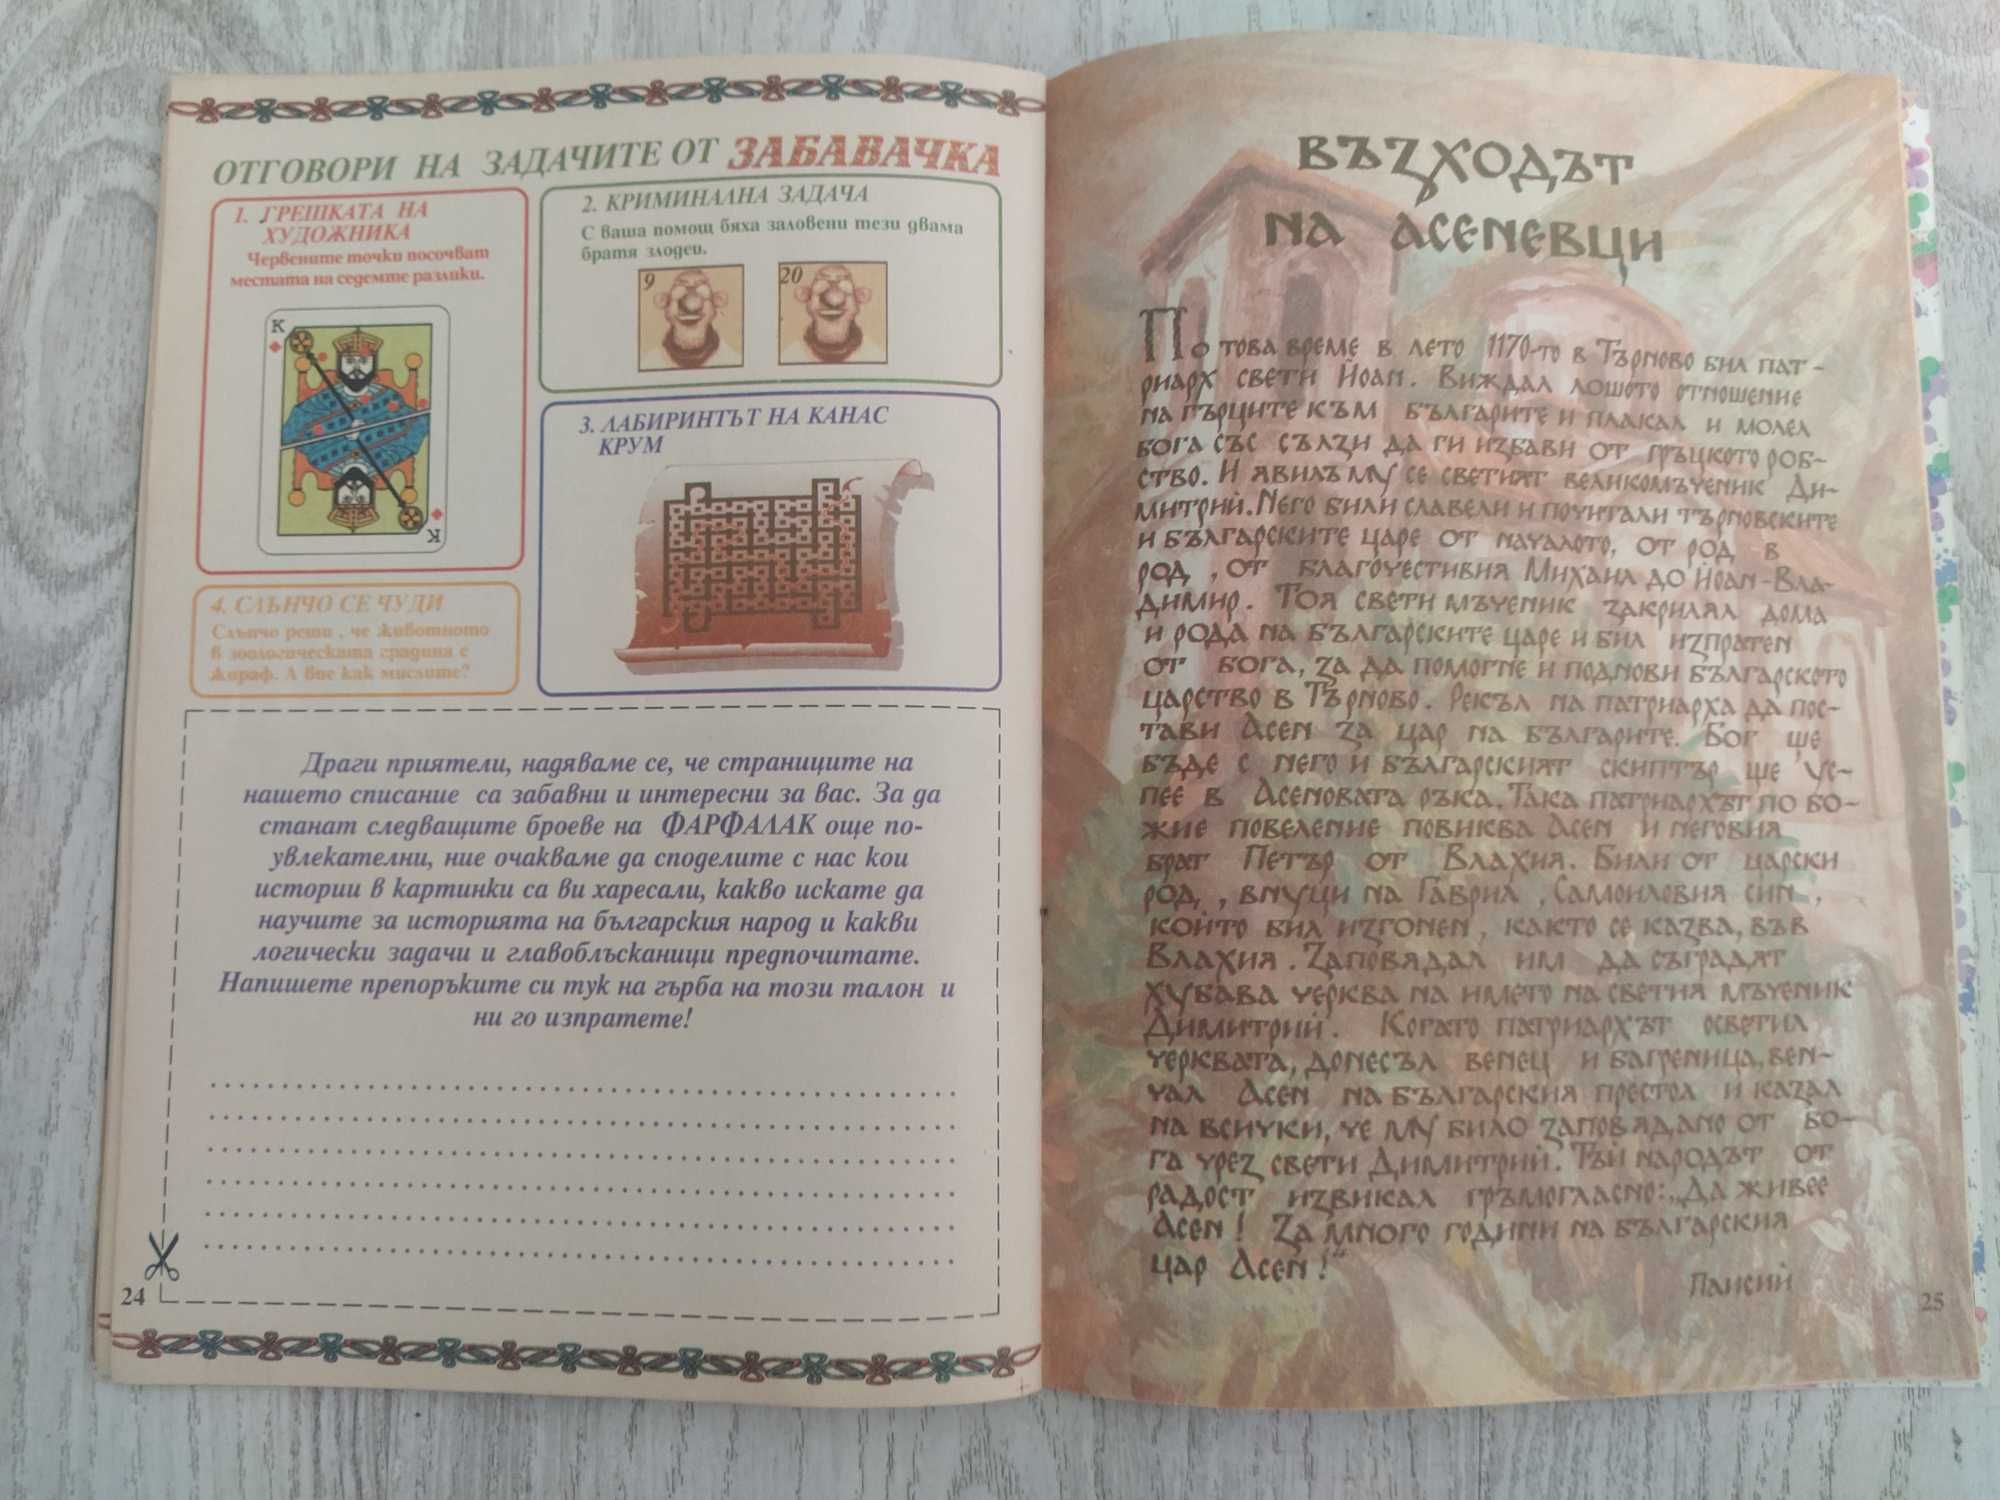 ОТГОВОРИ НА ЗАДАЧИТЕ ОТ ЗАБАВАЧКА
1. ГРЕШКАТА НА
ХУДОЖНИКА
Червените точки посочват
местата на седемте разлики.
K
K
2. КРИМИНАЛНА ЗАДАЧА
С ваша помощ бяха заловени тези двама
братя злодеи.
9
20
3. ЛАБИРИНТЪТ НА КАНАС
КРУМ
4. СЛЪНЧО СЕ ЧУДИ
Слънчо реши, че животното
в зоологическата градина е
жираф. А вие как мислите?
Драги приятели, надяваме се, че страниците на
нашето списание са забавни и интересни за вас. За да
станат следващите броеве на ФАРФАЛАК още по-
увлекателни, ние очакваме да споделите с нас кои
истории в картинки са ви харесали, какво искате да
научите за историята на българския народ и какви
логически задачи и главоблъсканици предпочитате.
Напишете препоръките си тук на гърба на този талон и
ни го изпратете!
24
ВЪЗХОДЪТ
НА АСЕНЕВЦИ
По това време в лето 1170-то в Търново бил пат-
риарх свети Йоан. Виждал лошото отношение
на гърците към българите и плакал и молел
бога със сълзи да ги избави от гръцкото роб-
ство. И явилъ му се светият великомъченик Ди-
митрий. Него били славели и почитали търновските
и българските царе от началото, от род в
род, от благочестивия Михаил до Йоан-Вла-
димир. Тоя свети мъченик закрилял дома
и рода на българските царе и бил изпратен
от бога, за да помогне и поднови българското
царство в Търново. Рекъл на патриарха да пос-
тави Асен за цар на българите. Бог ще
бъде с него и българският скиптър ще ус-
пее в Асеновата ръка. Така патриархът по бо-
жие повеление повиква Асен и неговия
брат Петър от Влахия. Били от царски
род, внуци на Гаврил, Самоиловия син,
който бил изгонен, както се казва, във
Влахия. Заповядал им да съградят
хубава черква на името на светия мъченик
Димитрий. Когато патриархът осветил
черквата, донесъл венец и багреница, вен-
чал Асен на българския престол и казал
на всички, че му било заповядано от бо-
га чрез свети Димитрий. Тъй народът от
радост извикал гръмогласно: „Да живее
Асен! За много години на българския
цар Асен!“
Паисий
25